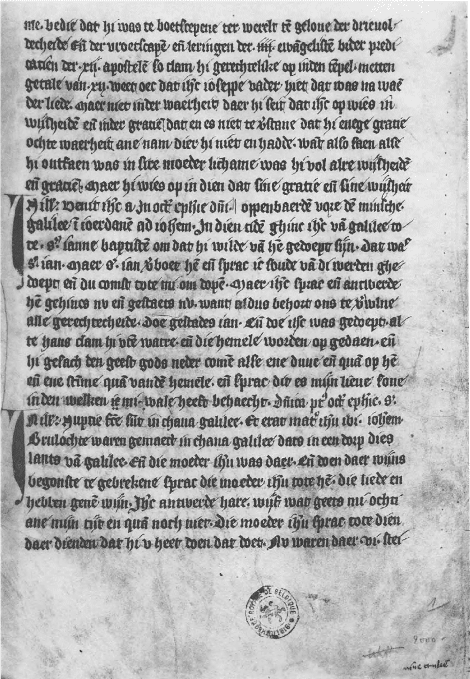 me. bedie dat hi was te boetscepene ter werelt tē gelove der drievol-
decheide eñ der vroetscape. eñ leringen der .iiij. ewāgelistē bider predi
catien der .xij. apostelē so clam hi gerechtelike op inden tēpel. metten
getale van .xij. weet oec dat ihc iosepse vader hiet dat was na waē
der liede. Maer niet inder waerheit daer hi seit dat ihc op wies in
wijsheidē eñ inder gratiē dat en es niet te v̄stane dat hi enege gratie
ochte waerheit ane nam dier hi niet en hadde. want also saen alse
hi ontfaen was in sire moeder lichame was hi vol alre wijsheidē
eñ gratiē. Maer hi wies op in dien dat sine gratie eñ sine wijsheit
In illo. venit ihc a. In oct. ephie dn̄i. oppenbaerde vore dē minsche.
galilee i iordenē ad iohem. In dien tidē ghinc ihc vā galilee to-
te. s. ianne baptistē om dat hi wilde vā hē gedoept sijn. Dat was
s. ian. Maer s. ian v̄boet hē eñ sprac ic soude vā di werden ghe-
doept eñ du comst tote mi om dopē. Maer ihc sprac eñ antwerde
hē gehincs nv eñ gestaets nv. want aldus behort ons te v̄vulne
alle gerechtecheide. Doe gestades ian. Eñ doe ihc was gedoept. al
te hans clam hi vtē watre. eñ die hemele worden op gedaen. eñ
hi gesach den geest gods neder comē alse ene duve eñ quā op hē
eñ ene stēme quā vandē hemele. eñ sprac dit es mijn lieue sone
in den welken ic mi wale hebbe behaecht. Dn̄ica p̄. oct. ephie. s.
In illo. Nuptie fc̄e sūt in chana galilee. Et erat mat ihu ibi. iohem.
Brulochte waren gemaect in chana galilee dats in een dorp dies
lants vā galilee. Eñ die moeder ihu was daer. Eñ doen daer wijns
begonste te gebrekene sprac die moeder ihu tote hē. die liede en
hebben genē wijn. Ihc antwerde hare. wijf wat geets mi ochti
ane mijn tijt en quā noch niet. Die moeder ihu sprac tote dien
daer dienden dat hi v heet doen dat doet. Nv waren daer .vi. stei-